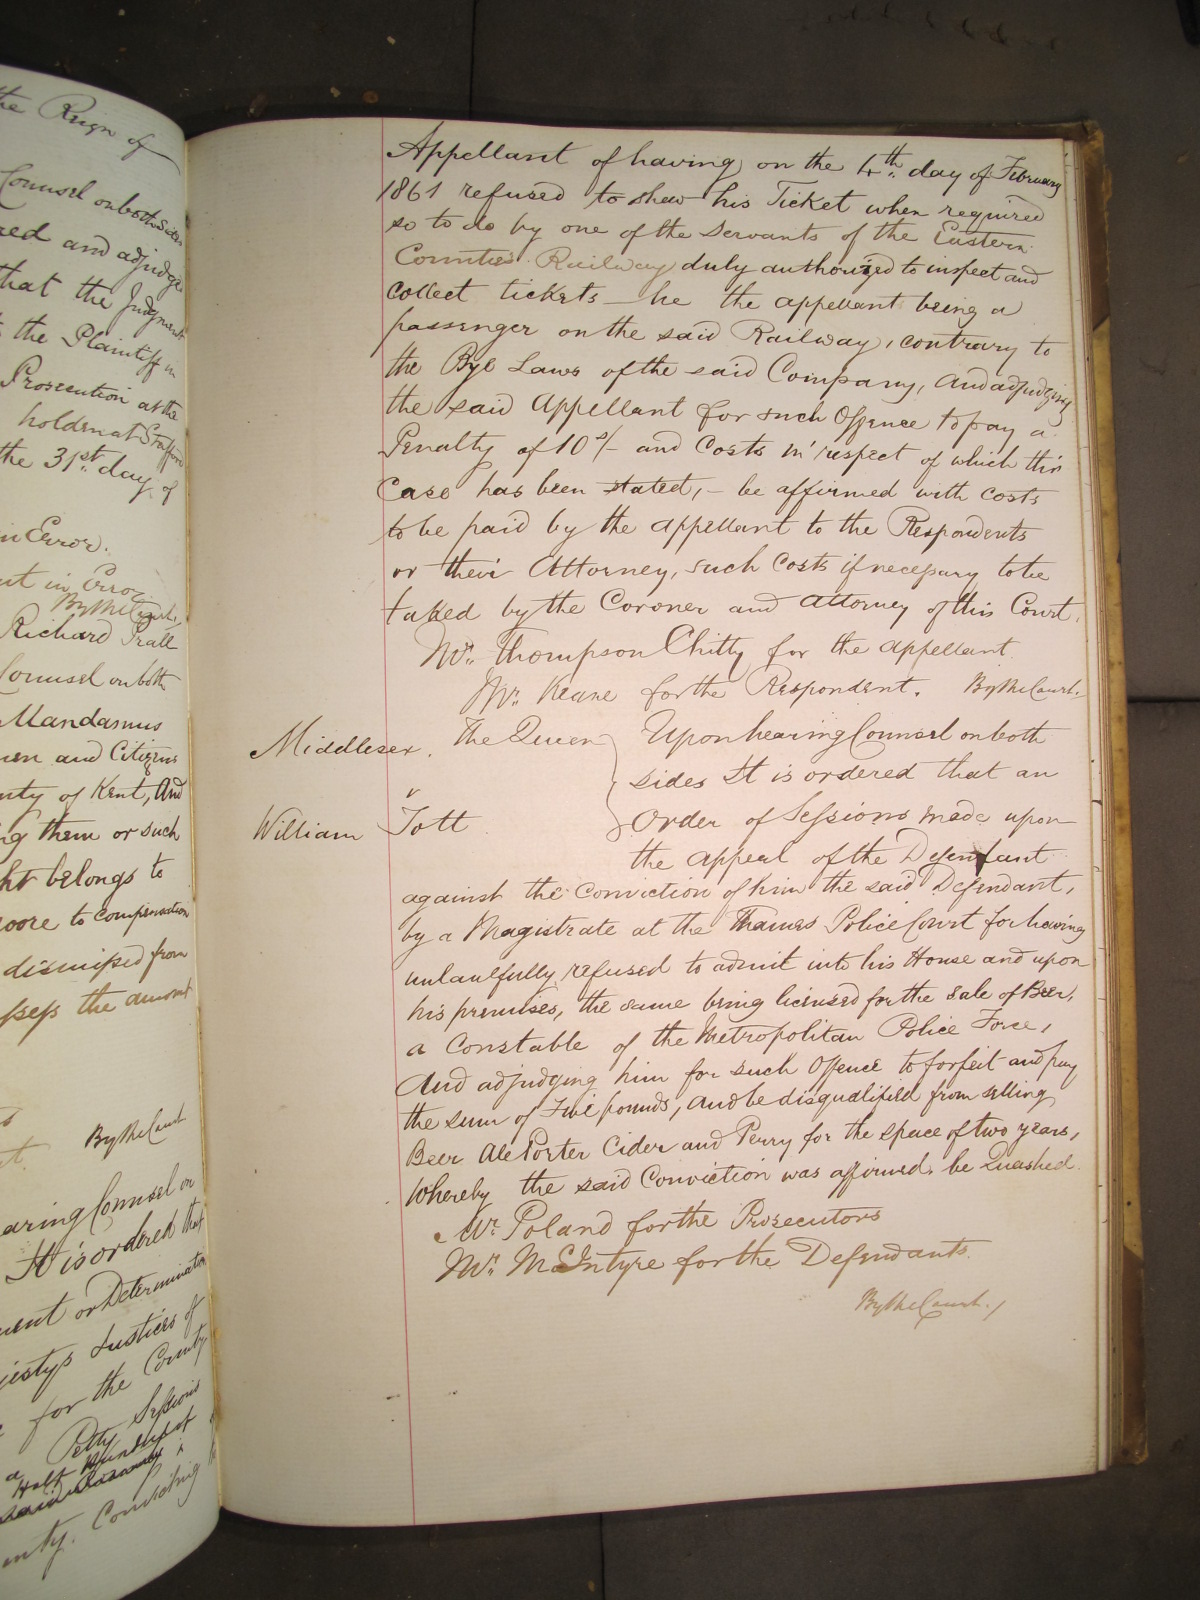 the Reign of
Counsel on both Sides
red and adjudge
that the Judgment
the Plaintiff in
Prosecution at the
holden at Stafford
the 31st day of
in Error.
nt in Error
By the Court.
Richard Prall
Counsel on both
Mandamus
men and Citizens
nty of Kent, And
ng them or such
ht belongs to
oore to compensation
dismissed from
ssess the amount
By the Court
aring Counsel on
It is ordered that
ment or Determination
jestys Justices of
for the County
a Petty Sessions
Half Hundred of
unty. Consisting
Appellant of having on the 4th day of February
1861 refused to shew his Ticket when required
so to do by one of the Servants of the Eastern
Counties Railway duly authorized to inspect and
collect tickets – he the appellant being a
passenger on the said Railway, contrary to
the Bye Laws of the said Company, And adjudging
the said Appellant for such Offence to pay a
Penalty of 10s/- and Costs in respect of which this
Case has been stated, – be affirmed with costs
to be paid by the appellant to the Respondents
or their Attorney, such Costs if necessary to be
taxed by the Coroner and Attorney of this Court.
Mr. Thompson Chitty for the Appellant.
Mr. Keane for the Respondent. By the Court.
Middlesex. The Queen } Upon hearing Counsel on both
sides It is ordered that an
v
William Tott Order of Sessions made upon
the appeal of the Defendant
against the Conviction of him the said Defendant,
by a Magistrate at the Thames Police Court for having
unlawfully refused to admit into his House and upon
his premises, the same being licensed for the sale of Beer,
a Constable of the Metropolitan Police Force,
And adjudging him for such Offence to forfeit and pay
the sum of Five pounds, and be disqualified from selling
Beer Ale Porter Cider and Perry for the space of two years,
Whereby the said Conviction was affirmed, be Quashed.
Mr. Poland for the Prosecutors
Mr. McIntyre for the Defendants.
By the Court.